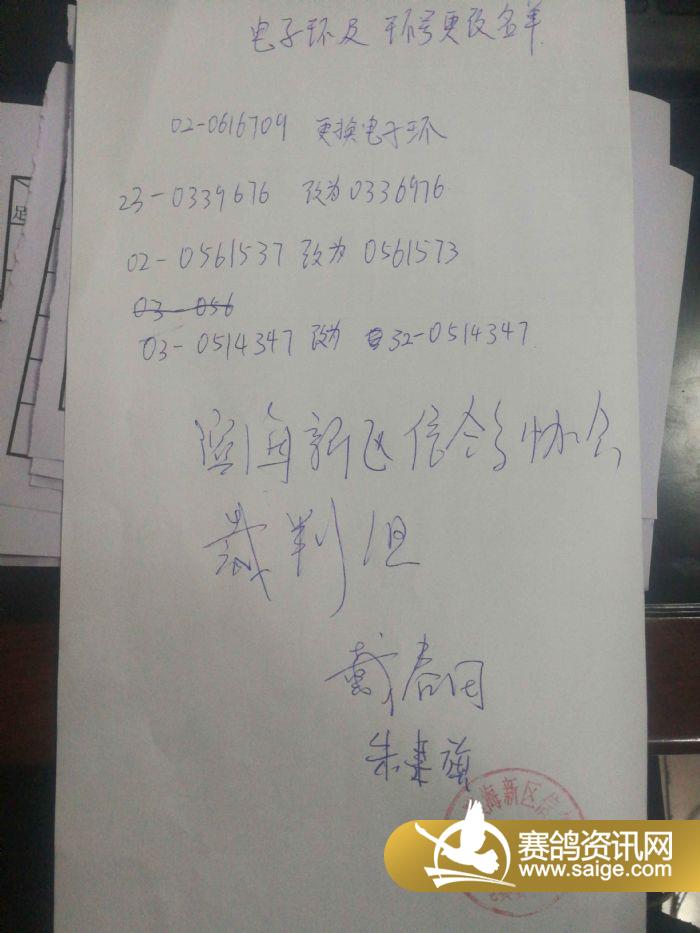 电子环及环号更改名单
02-0616709 更换电子环
23-0339676 改为0336976
02-0561537 改为 0561573
03-056
03-0514347 改为 32-0514347
滨海新区信鸽协会
裁判组
戴春因
朱建旗
海新区信
赛鸽资讯网
www.saige.com
足